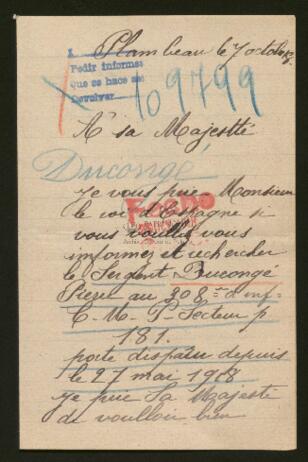 Plambeau le 7 octobre
1.
Pedir informes
Que se hace se
Devolver
109799
A sa Majestté
Ducongé
Je vous prie Monsieur
le roi d'Espagne si
vous voulliez vous
informez et rechercher
le Sergent Ducongé
Pierre au 308e d'inf
C. M. P. Secteur p
181.
porte disparu depuis
le 27 mai 1918
je prie Sa Majeste
de voulloir bien